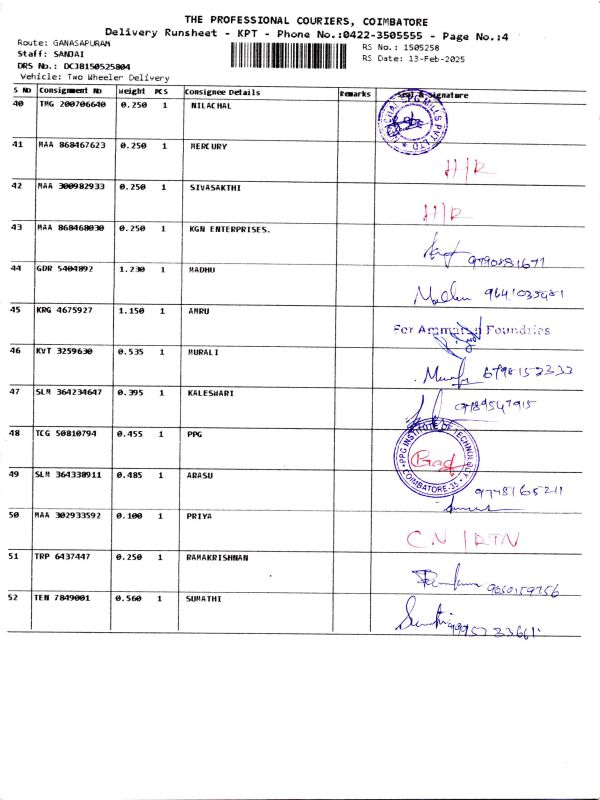 THE PROFESSIONAL COURIERS, COIMBATORE
Delivery Runsheet - KPT - Phone No.:0422-3505555 - Page No.:4
Route: GANASAPURAM
RS No.: 1505258
Staff: SANJAI
RS Date: 13-Feb-2025
DRS No.: DCJB150525804
Vehicle: Two Wheeler Delivery
S No Consignment No Weight PCS Consignee Details Remarks Seal & Signature
40 TMG 200706640 0.250 1 NILACHAL
41 MAA 868467623 0.250 1 MERCURY H/R
42 MAA 300982933 0.250 1 SIVASAKTHI H/R
43 MAA 868468030 0.250 1 KGN ENTERPRISES. 9790881671
44 GDR 5404892 1.230 1 MADHU
45 KRG 4675927 1.150 1 AMRU For Amman Foundries
46 KVT 3259630 0.535 1 MURALI
47 SLM 364234647 0.395 1 KALESWARI 9789547915
48 TCG 50810794 0.455 1 PPG PPG INSTITUTE OF TECHNOLOGY COIMBATORE-35
49 SLM 364338911 0.485 1 ARASU
50 MAA 302933592 0.100 1 PRIYA CN/RTN
51 TRP 6437447 0.250 1 RAMAKRISHNAN
52 TEN 7849001 0.560 1 SUMATHI